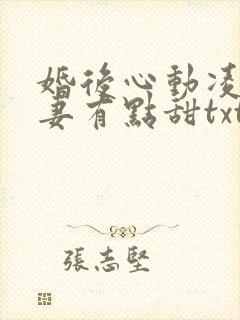 婚後心動凌
妻有點甜txt
張志堅